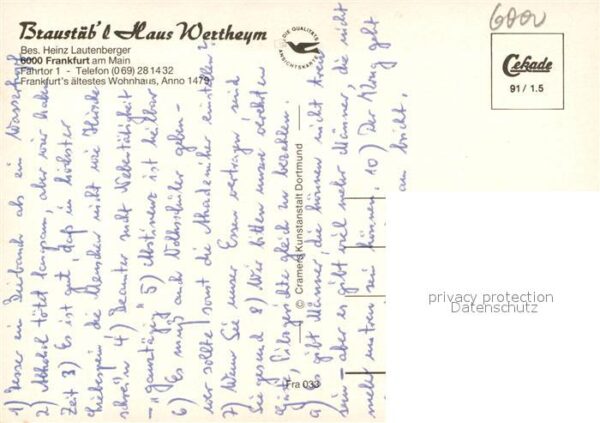 Braustüb'l Haus Wertheym
Bes. Heinz Lautenberger
6000 Frankfurt am Main
Fahrtor 1 - Telefon (069) 28 14 32
Frankfurt's ältestes Wohnhaus, Anno 1479
DIE QUALITÄTS
ANSICHTSKARTE
6000
Cekade
91 / 1.5
© Cramers Kunstanstalt Dortmund
Fra 033
privacy protection
Datenschutz
1) Besser ein Bierbauch als ein Wasserkopf
2) Alkohol tötet langsam, aber wir haben
Zeit 3) Es ist gut, daß in höchster
Liebespein die Menschen nicht wie Hirsche
schrei'n 4) Beamter sucht Nebentätigkeit
- "ganztägig" 5) Abstinenz ist heilbar
6) Es muß auch Volksschüler geben -
wer sollte sonst die Akademiker einstellen?
7) Wenn Sie unser Essen vertragen sind
Sie gesund 8) Wir bitten unsere verehrten
Gäste, Eilgerichte gleich zu bezahlen!
9) es gibt Männer, die können nicht treu
sein - aber es gibt viel mehr Männer, die nicht
mehr untreu sein können. 10) Der Krug geht
bricht.